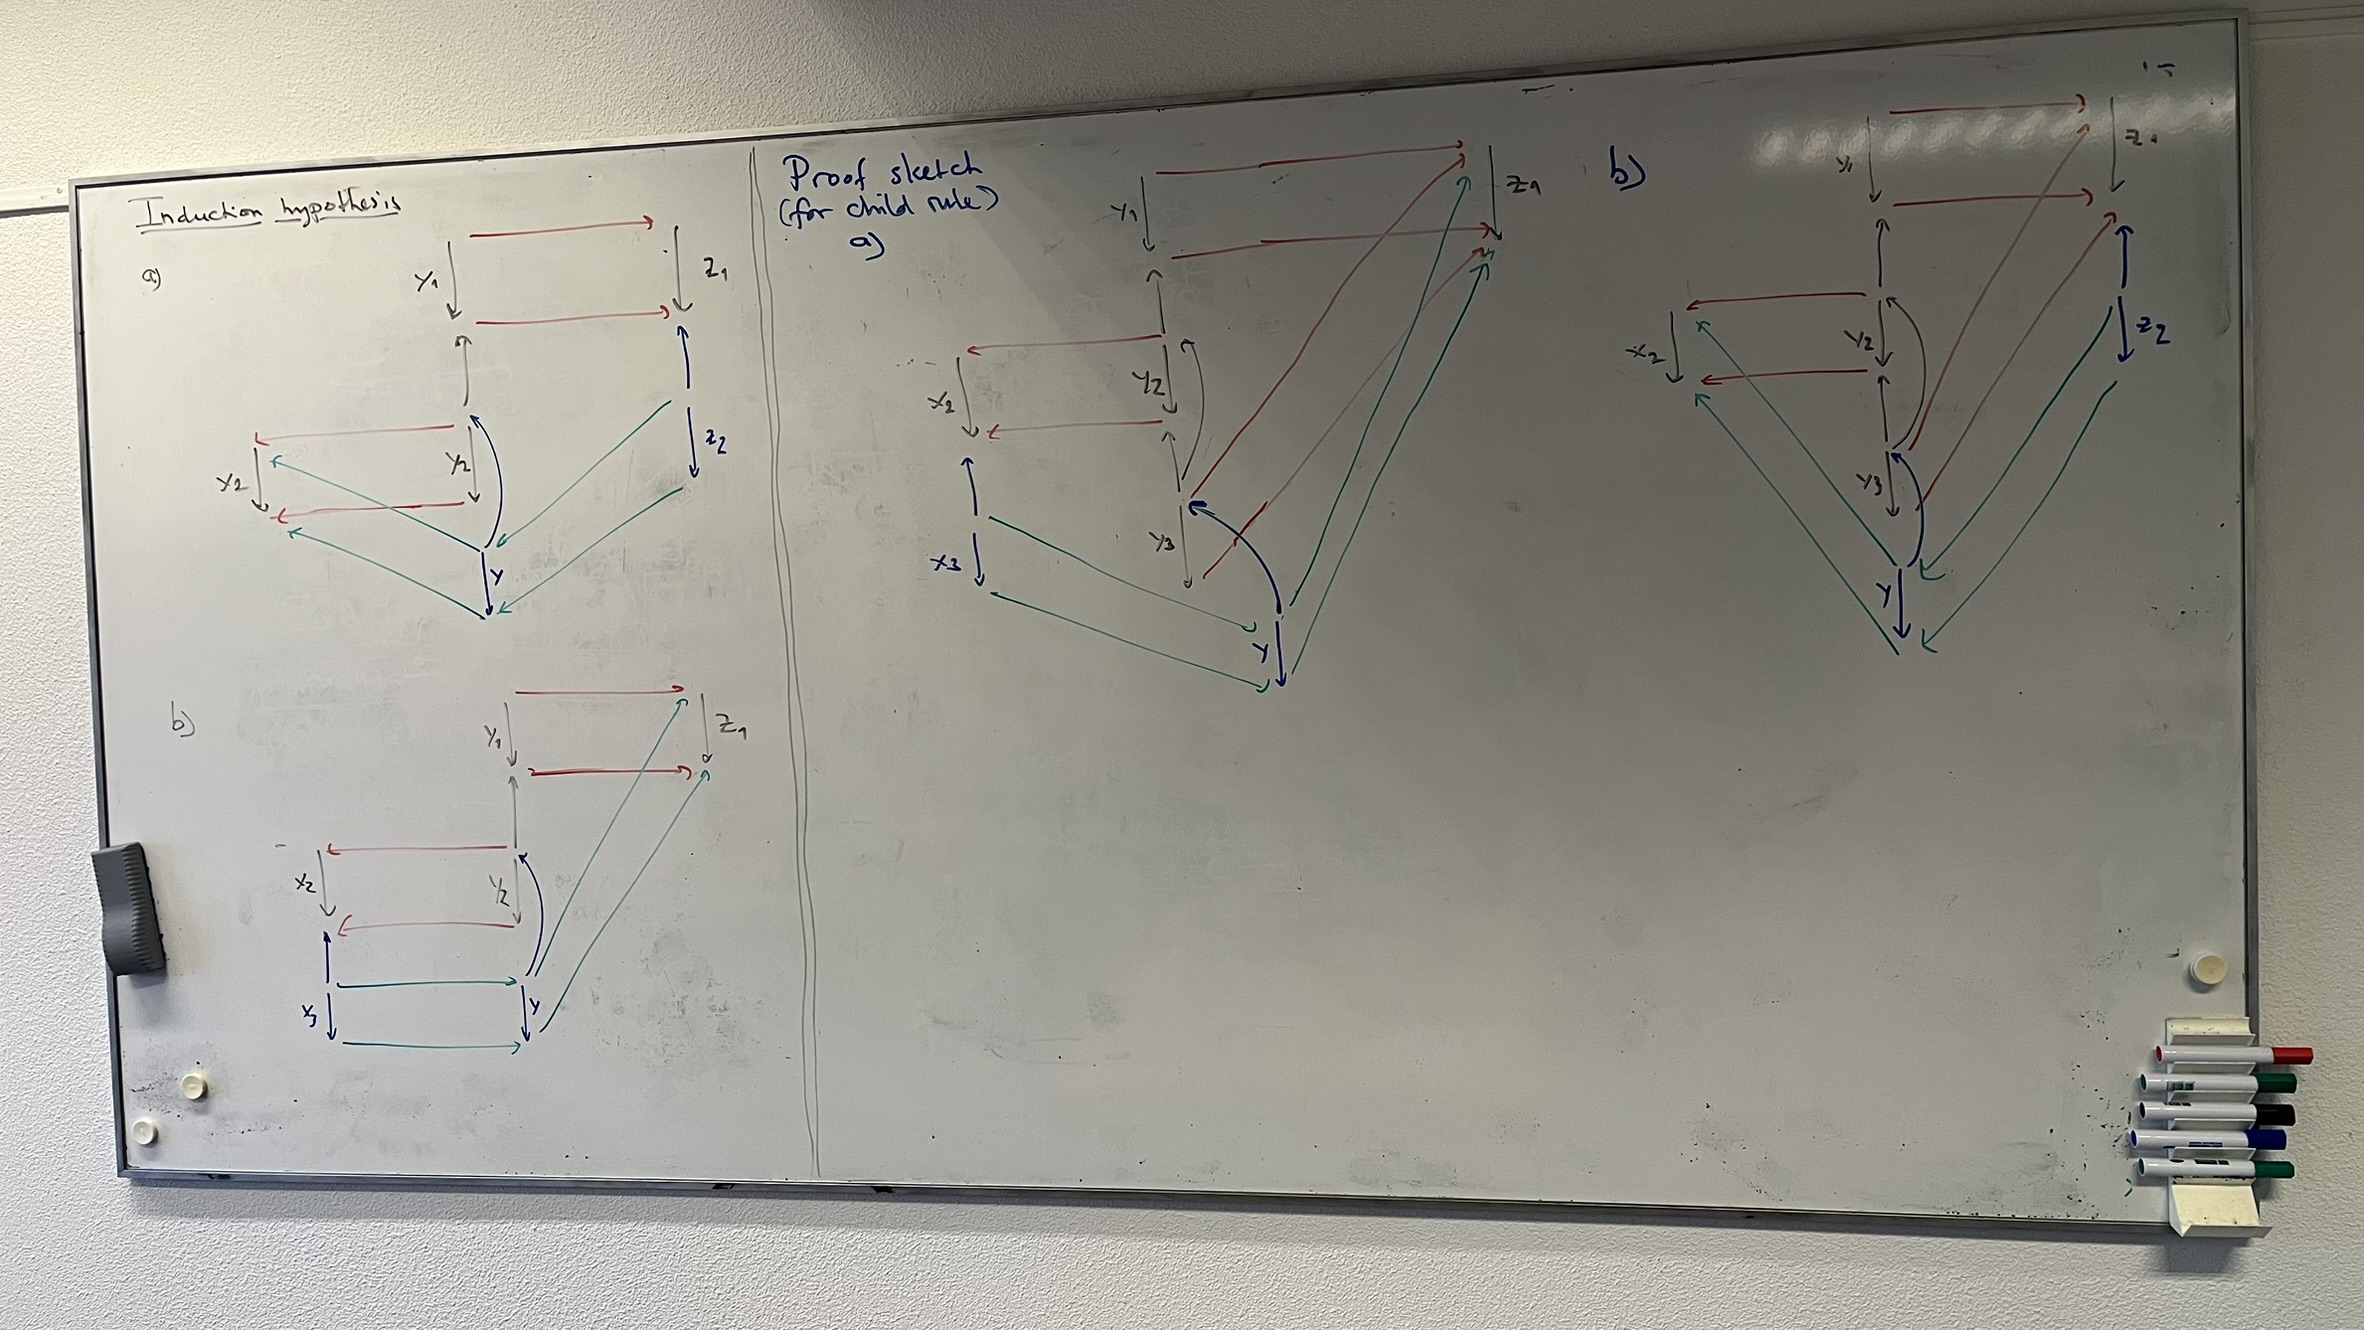 Induction hypothesis
a)
y₁
z₁
x₂
y₂
z₂
y
b)
y₁
z₁
x₂
y₂
x₃
y
Proof sketch
(for child rule)
a)
y₁
z₁
x₂
y₂
x₃
y₃
y
b)
y₁
z₁
x₂
y₂
z₂
y₃
y